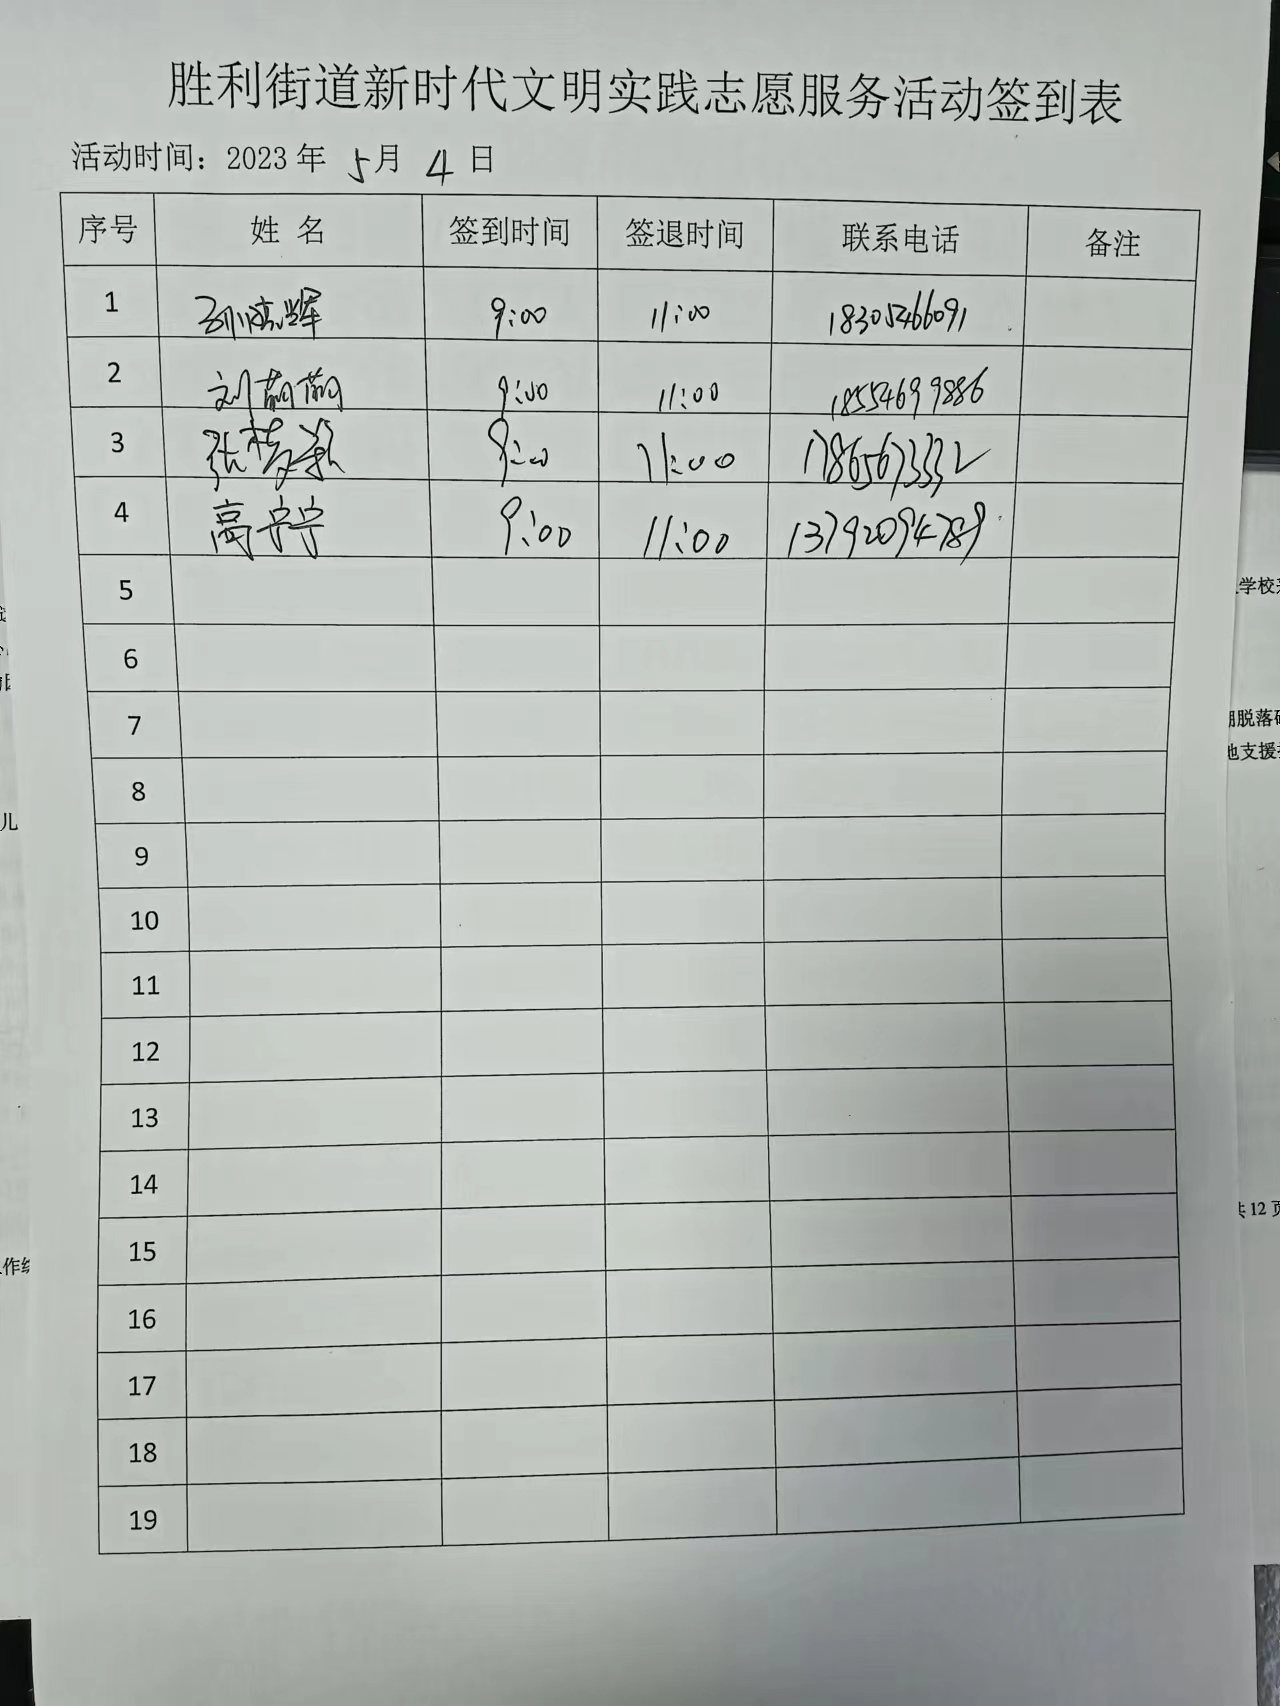 胜利街道新时代文明实践志愿服务活动签到表
活动时间：2023 年 5月 4 日
序号 姓 名 签到时间 签退时间 联系电话 备注
1 9:00 11:00 18305466091
2 刘萌萌 9:00 11:00 18554699886
3 张梦 9:00 11:00
4 高宁宁 9:00 11:00 13792094789
5
6
7
8
9
10
11
12
13
14
15
16
17
18
19
学校
脱落
地支援
共12页
儿
作